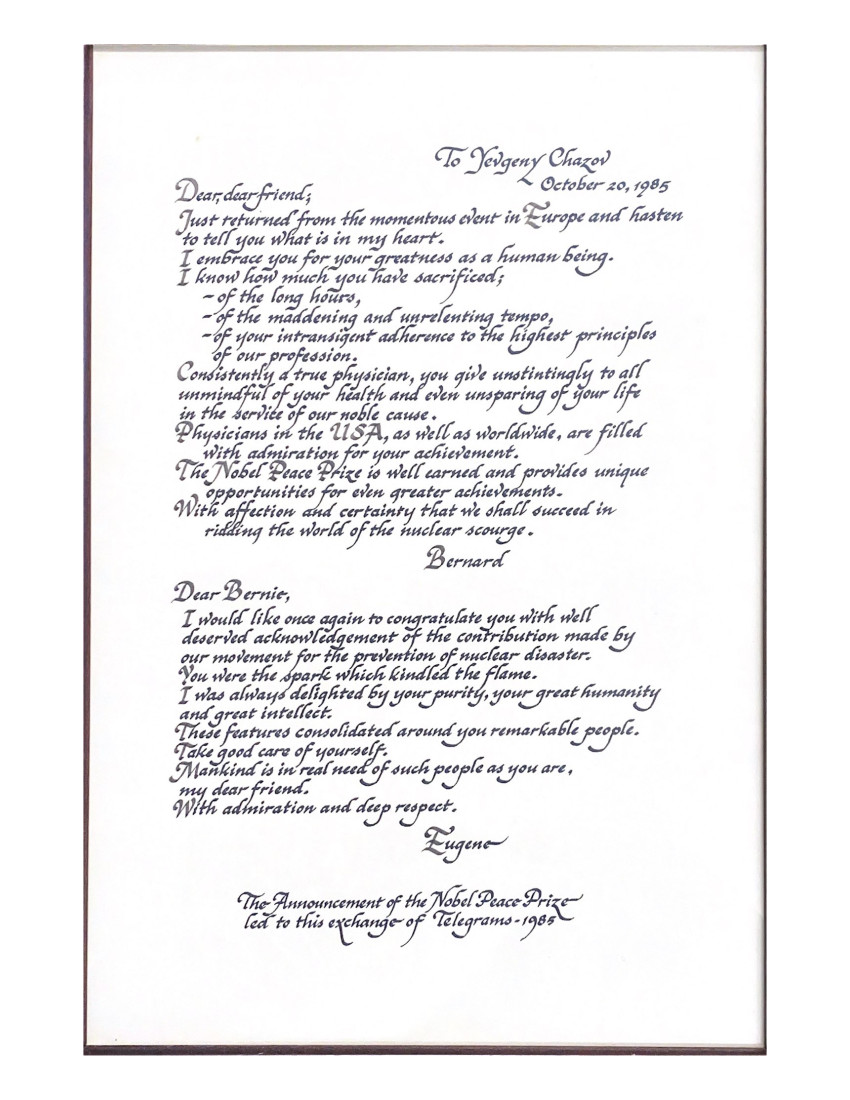 To Yevgeny Chazov
October 20, 1985
Dear, dear friend;
Just returned from the momentous event in Europe and hasten
to tell you what is in my heart.
I embrace you for your greatness as a human being.
I know how much you have sacrificed;
- of the long hours,
- of the maddening and unrelenting tempo,
- of your intransigent adherence to the highest principles
of our profession.
Consistently a true physician, you give unstintingly to all
unmindful of your health and even unsparing of your life
in the service of our noble cause.
Physicians in the USA, as well as worldwide, are filled
with admiration for your achievement.
The Nobel Peace Prize is well earned and provides unique
opportunities for even greater achievements.
With affection and certainty that we shall succeed in
ridding the world of the nuclear scourge.
Bernard
Dear Bernie,
I would like once again to congratulate you with well
deserved acknowledgement of the contribution made by
our movement for the prevention of nuclear disaster.
You were the spark which kindled the flame.
I was always delighted by your purity, your great humanity
and great intellect.
These features consolidated around you remarkable people.
Take good care of yourself.
Mankind is in real need of such people as you are,
my dear friend.
With admiration and deep respect.
Eugene
The Announcement of the Nobel Peace Prize
led to this exchange of Telegrams - 1985